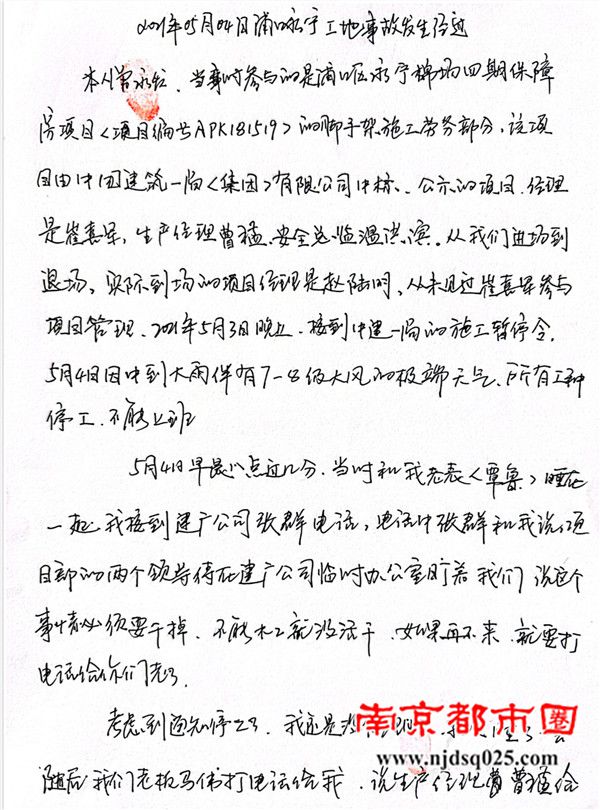 2021年05月04日浦口永宁工地事故发生经过
本人曾永 、当事时参与的是浦口区永宁棉场四期保障
房项目<项目编号APK181519>的脚手架施工劳务部分，该项
目由中国建筑一局<集团>有限公司中标、公示的项目经理
是崔喜 ，生产经理曹猛、安全总监温洪滨。从我们进场到
退场，实际到场的项目经理是赵陆明，从未见过崔喜 参与
项目管理，2021年5月3日晚上，接到中建一局的施工暂停令，
5月4日因中到大雨伴有7-8级大风的极端天气，所有工种
停工，不能上班
5月4日早晨八点过几分，当时和我老表<覃鲁>睡在
一起我接到建广公司张群电话，电话中张群和我说项
目部的两个领导待在建广公司临时办公室盯着我们说这个
事情必须要干掉，不能木工就没活干，如果再不来，就要打
电话给你们老
考虑到通知停工了，我还是没
随后我们老板马伟打电话给我，说生产经理曹猛给
南京都市圈
www.njdsq025.com